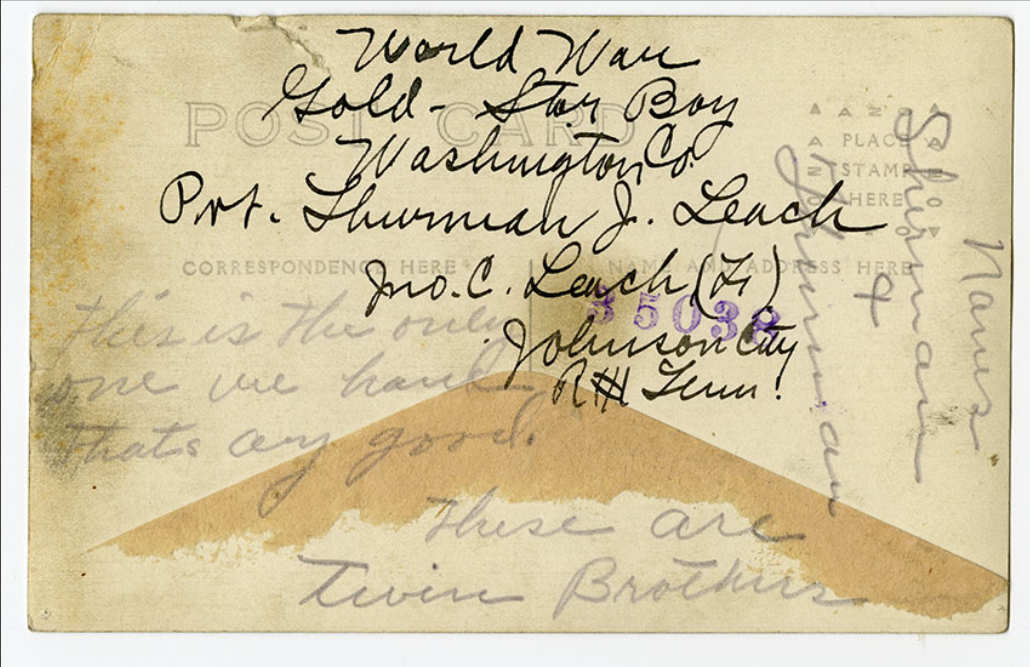 World War
Gold-Star Boy
Washington Co.
Pvt. Thurman J. Leach
Jno. C. Leach (F)
Johnson City
Tenn.
POST CARD
AZO
PLACE
STAMP
HERE
CORRESPONDENCE HERE
NAME AND ADDRESS HERE
35038
this is the only
one we have
thats any good.
these are
Twin Brothers
Names
Shurman
&
Thurman